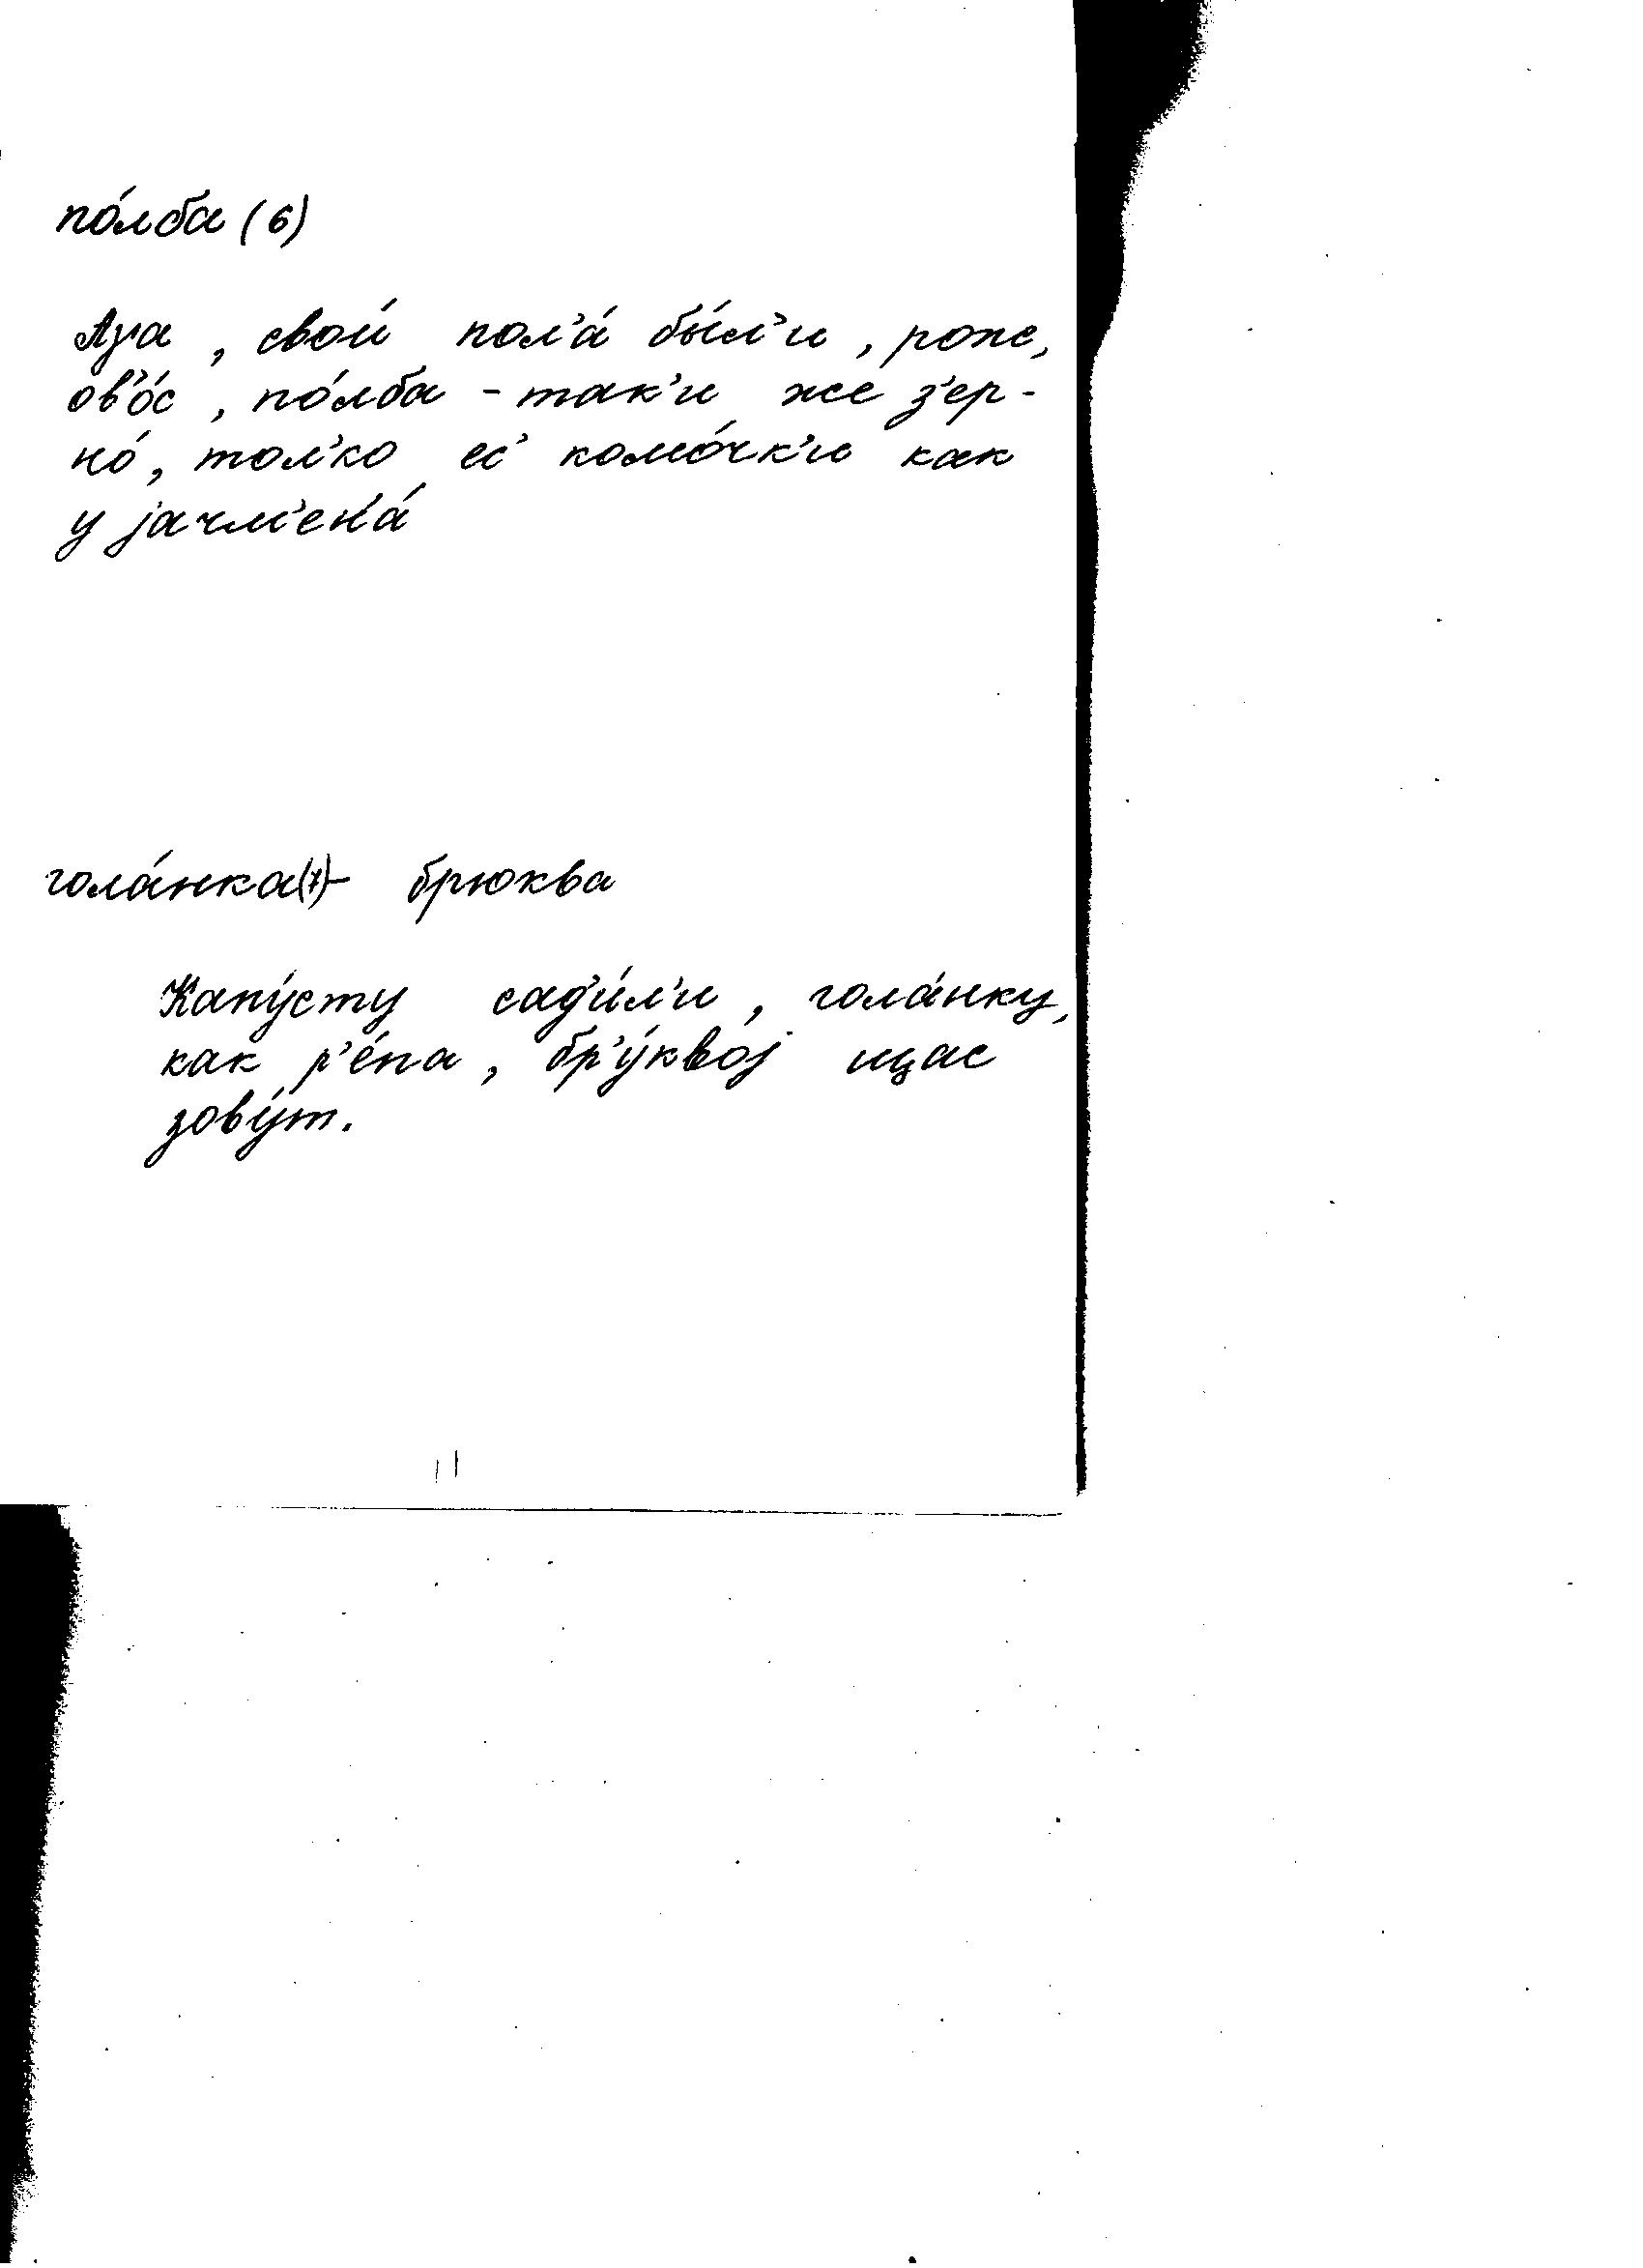 по́лба (6)
Ага, свои́ пол'а́ бы́л'и, роже,
ов'о́с, по́лба - так'и же з'ер-
но́, тол'ко ес' комо́чк'и как
у јачм'ен'а́
гола́нка(7)- брюква
Капу́сту сад'и́л'и, гола́нку,
как р'е́па, бр'у́квој щас
зову́т.